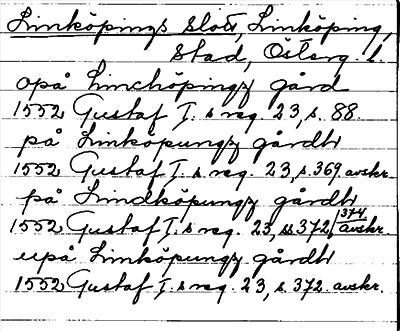 Linköpings slott, Linköping,
Stad, Österg. l.
opå Linchöpingz gård
1552 Gustaf I. s reg. 23, s. 88.
på Linköpungz gårdh
1552 Gustaf I. s reg. 23, s. 369 avskr.
på Lindköpungz gårdh
1552 Gustaf I. s reg. 23, ss. 372, 374 avskr.
upå Linköpungz gårdh
1552 Gustaf I. s reg. 23, s. 372. avskr.